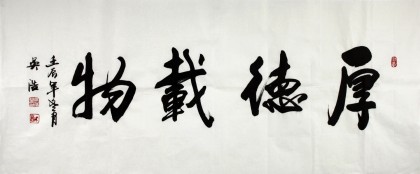 厚德載物
壬辰年冬月
吴浩